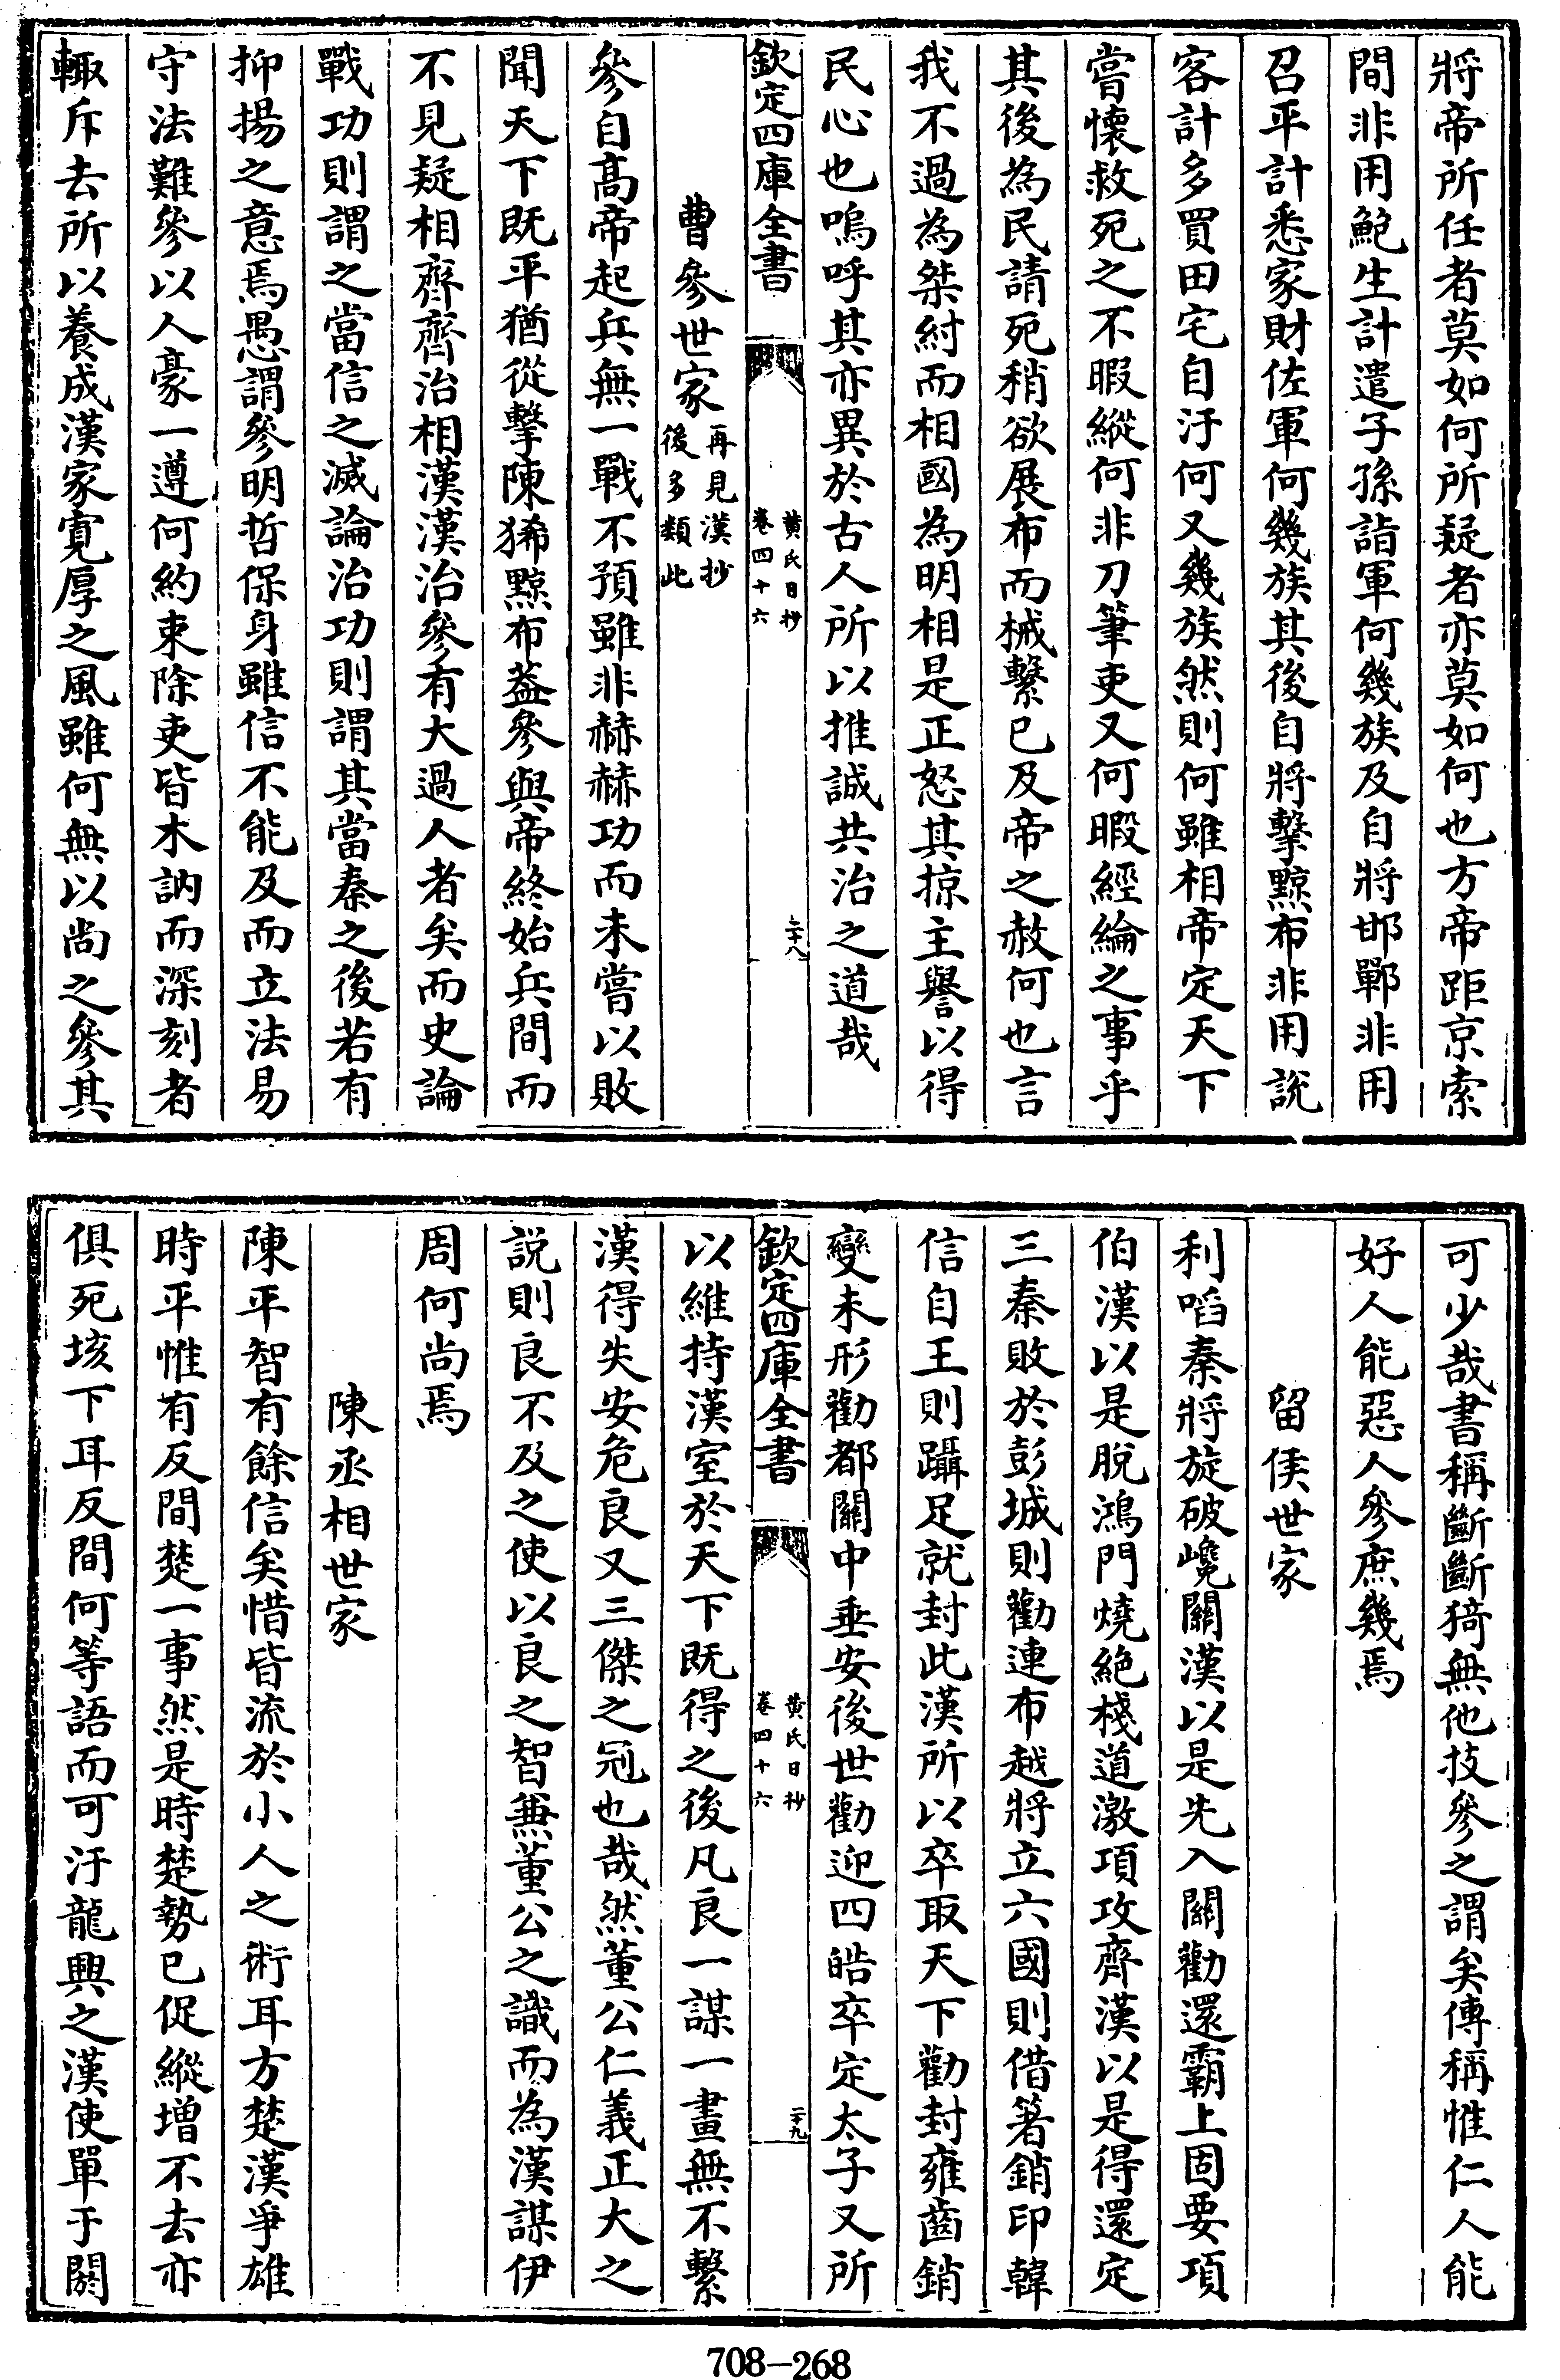 將帝所任者莫如何所疑者亦莫如何也方帝距京索
間非用鮑生計遣子孫詣軍何幾族及自將邯鄲非用
召平計悉家財佐軍何幾族其後自將擊黥布非用說
客計多買田宅自汙何又幾族然則何雖相帝定天下
嘗懷救死之不暇縱何非刀筆吏又何暇經綸之事乎
其後為民請死稍欲展布而械繫已及帝之赦何也言
我不過為桀紂而相國為明相是正怒其掠主譽以得
民心也嗚呼其亦異於古人所以推誠共治之道哉
欽定四庫全書
黃氏日抄
卷四十六
二十八
曹參世家
再見漢抄
後多類此
參自高帝起兵無一戰不預雖非赫赫功而未嘗以敗
聞天下既平猶從擊陳豨黥布葢參與帝終始兵間而
不見疑相齊齊治相漢漢治參有大過人者矣而史論
戰功則謂之當信之滅論治功則謂其當秦之後若有
抑揚之意焉愚謂參明哲保身雖信不能及而立法易
守法難參以人豪一遵何約束除吏皆木訥而深刻者
輙斥去所以養成漢家寛厚之風雖何無以尚之參其
可少哉書稱斷斷猗無他技參之謂矣傳稱惟仁人能
好人能惡人參庶幾焉
留侯世家
利啗秦將旋破嶢關漢以是先入關勸還霸上固要項
伯漢以是脫鴻門燒絶棧道激項攻齊漢以是得還定
三秦敗於彭城則勸連布越將立六國則借箸銷印韓
信自王則躡足就封此漢所以卒取天下勸封雍齒銷
變未形勸都關中垂安後世勸迎四皓卒定太子又所
欽定四庫全書
黃氏日抄
卷四十六
二十九
以維持漢室於天下既得之後凡良一謀一畫無不繫
漢得失安危良又三傑之冠也哉然董公仁義正大之
說則良不及之使以良之智兼董公之識而為漢謀伊
周何尚焉
陳丞相世家
陳平智有餘信矣惜皆流於小人之術耳方楚漢爭雄
時平惟有反間楚一事然是時楚勢已促縱增不去亦
俱死垓下耳反間何等語而可汙龍興之漢使單于閼
708-268